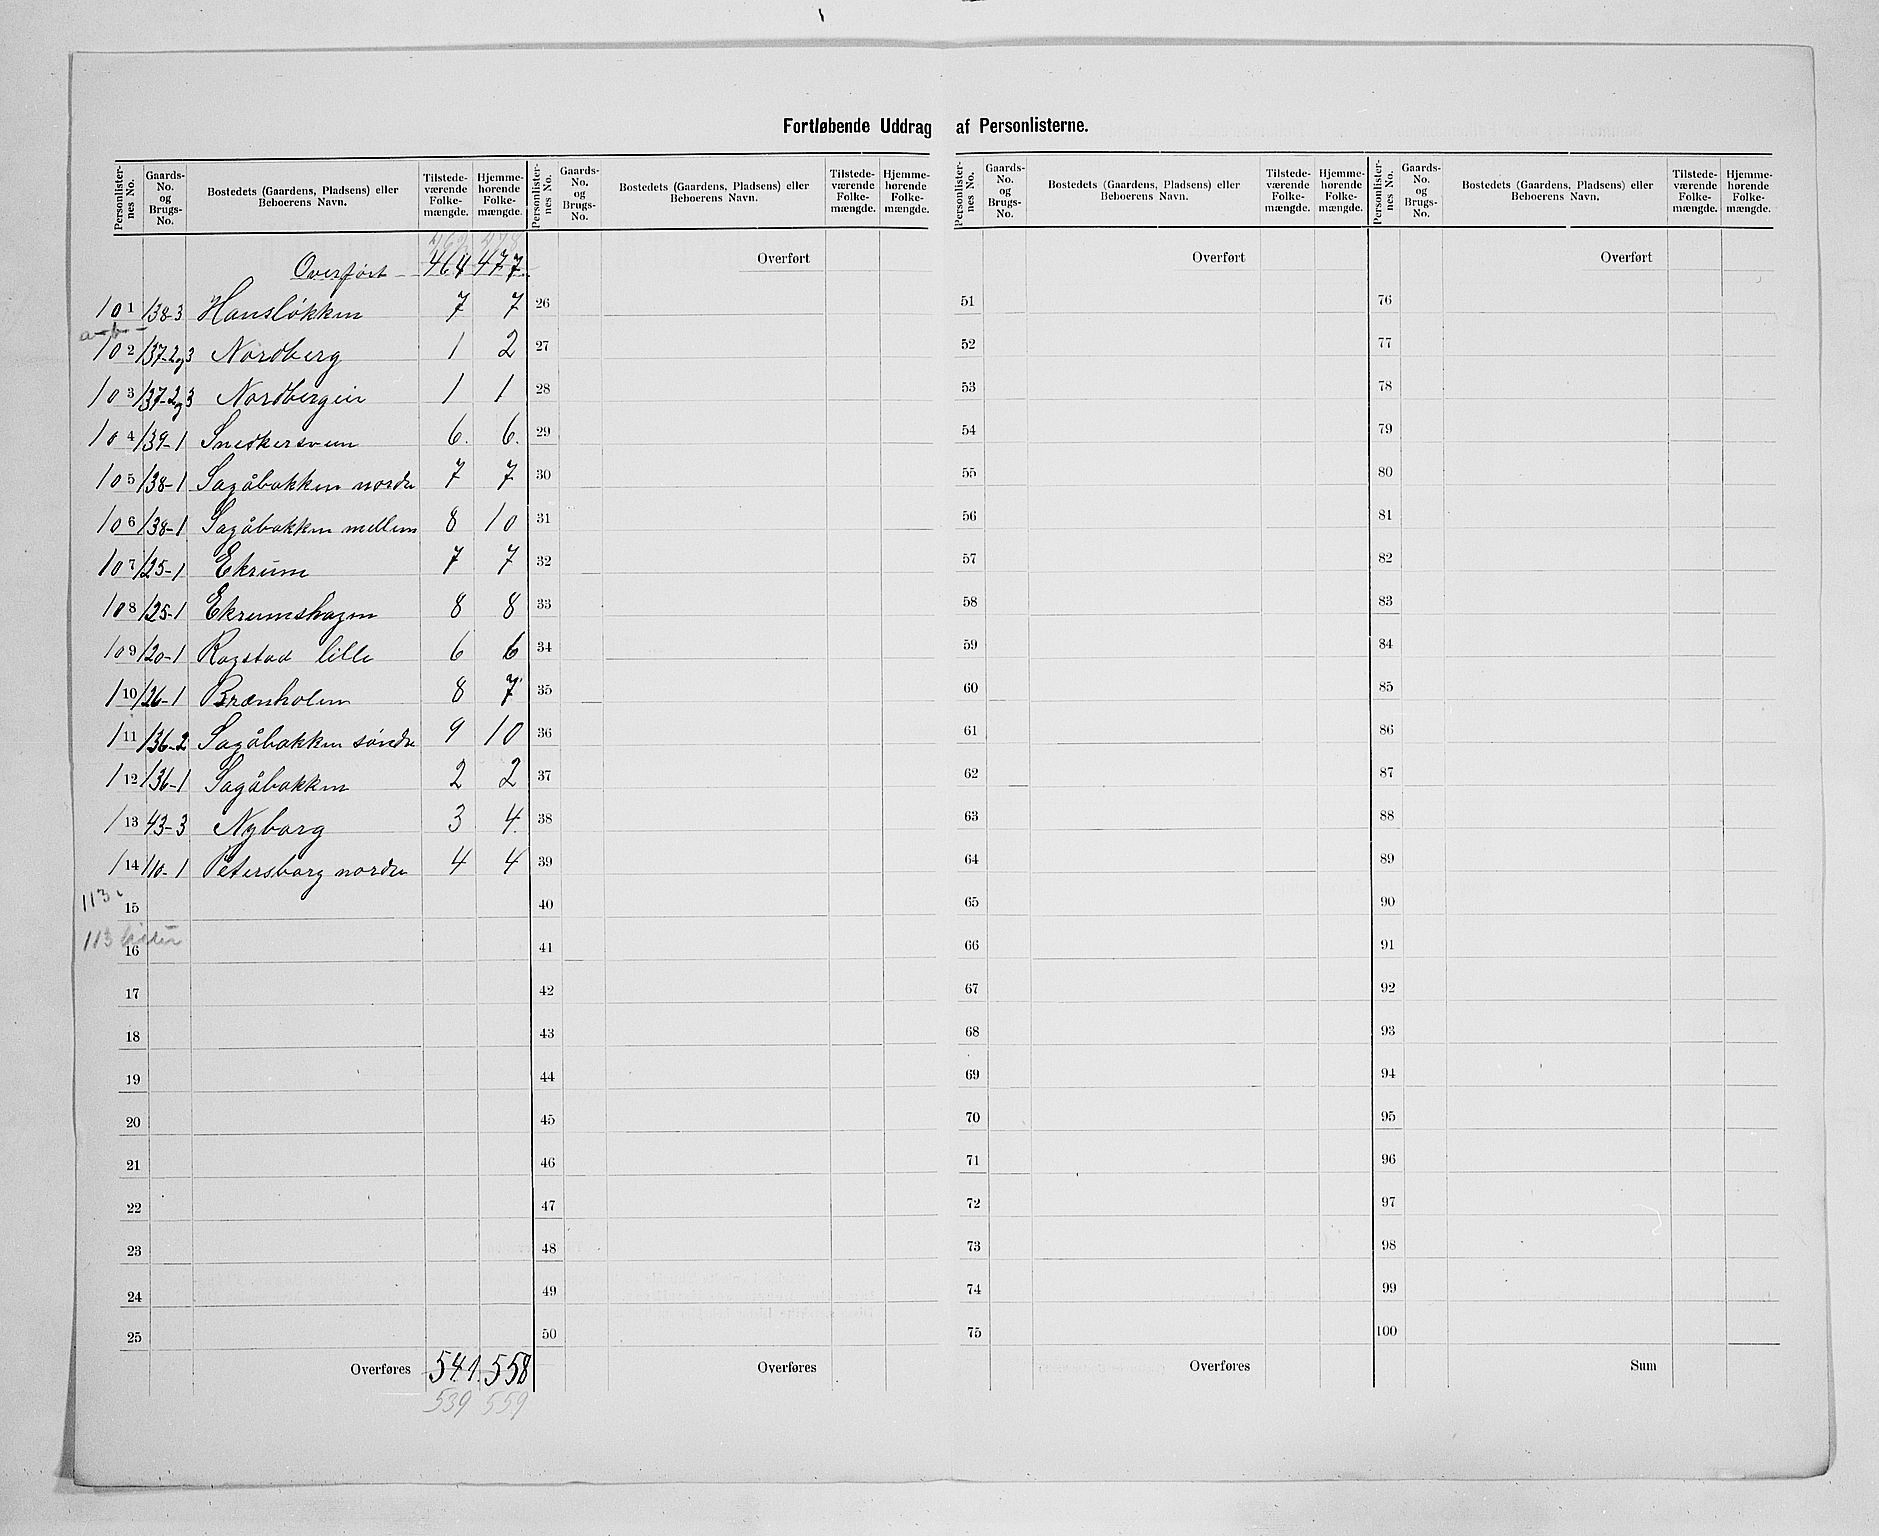 Fortløbende Uddrag af Personlisterne.
Personlister-nes No. | Gaards-No. og Brugs-No. | Bostedets (Gaardens, Pladsens) eller Beboerens Navn. | Tilstede-værende Folke-mængde. | Hjemme-hørende Folke-mængde.
Overført 464 477
462 478
101 138-3 Hansløkken 7 7
a-b-
102 137-2og3 Nordberg 1 2
103 137-2og3 Nordbergeie 1 1
104 139-1 Snedkersveen 6. 6.
105 138-1 Sagåbakken nordre 7 7
106 138-1 Sagåbakken mellem 8 10
107 125-1 Ekrum 7 7
108 125-1 Ekrumshagen 8 8
109 120-1 Rogstad lille 6 6
110 126-1 Brænholen 8 7
111 136-2 Sagåbakken søndre 9 10
112 136-1 Sagåbakken 2 2
113 43-3 Nyborg 3 4.
114 110-1 Petersborg nordre 4 4
113.
15
113 lister
16
17
18
19
20
21
22
23
24
25
Overføres 541. 558
539 559
Personlister-nes No. | Gaards-No. og Brugs-No. | Bostedets (Gaardens, Pladsens) eller Beboerens Navn. | Tilstede-værende Folke-mængde. | Hjemme-hørende Folke-mængde.
Overført
26
27
28
29
30
31
32
33
34
35
36
37
38
39
40
41
42
43
44
45
46
47
48
49
50
Overføres
Personlister-nes No. | Gaards-No. og Brugs-No. | Bostedets (Gaardens, Pladsens) eller Beboerens Navn. | Tilstede-værende Folke-mængde. | Hjemme-hørende Folke-mængde.
Overført
51
52
53
54
55
56
57
58
59
60
61
62
63
64
65
66
67
68
69
70
71
72
73
74
75
Overføres
Personlister-nes No. | Gaards-No. og Brugs-No. | Bostedets (Gaardens, Pladsens) eller Beboerens Navn. | Tilstede-værende Folke-mængde. | Hjemme-hørende Folke-mængde.
Overført
76
77
78
79
80
81
82
83
84
85
86
87
88
89
90
91
92
93
94
95
96
97
98
99
100
Sum